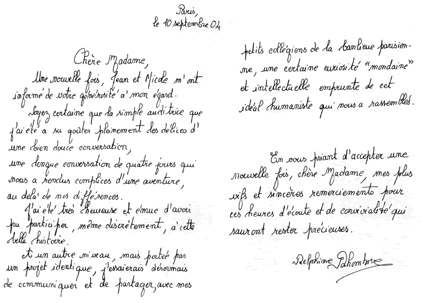 Paris,
le 10 septembre 04
Chère Madame,
Une nouvelle fois, Jean et Nicole m'ont
informé de votre générosité à mon égard.
Soyez certaine que la simple auditrice que
j'ai été a su goûter pleinement des délices d'
une bien douce conversation,
une longue conversation de quatre jours qui
nous a rendus complices d'une aventure,
au delà de nos différences.
J'ai été très heureuse et émue d'avoir
pu participer, même discrètement, à cette
belle histoire.
A un autre niveau, mais portée par
un projet identique, j'essaierai désormais
de communiquer et de partager, avec mes
petits collégiens de la banlieue parisien-
ne, une certaine curiosité "mondaine"
et intellectuelle emprunte de cet
idéal humaniste qui nous a rassemblés.
En vous priant d'accepter une
nouvelle fois, chère Madame, mes plus
vifs et sincères remerciements pour
ces heures d'écoute et de convivialité qui
sauront rester précieuses.
Delphine